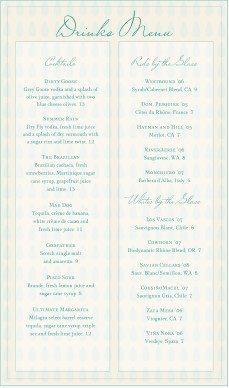 Drinks Menu
Cocktails
Dirty Goose
Grey Goose vodka and a splash of
olive juice, garnished with two
blue cheese olives. 13
Summer Rain
Dry Fly vodka, fresh lime juice
and a splash of dry vermouth with
a sugar rim and lime twist. 12
The Brazilian
Bacardi cachaca, fresh
strawberries, Martinique sugar
cane syrup, grapefruit juice
and lime. 12
Mad Dog
Tequila, crème de banana,
white crème de cacao and
fresh lime. 11
Godfather
Scotch single malt
and amaretto. 9
Pisco Sour
Brandy, fresh lemon juice and
sugar cane syrup. 8
Ultimate Margarita
Milagro select barrel reserve
tequila, sugar cane syrup, triple
sec and fresh lime. 12
Reds by the Glass
Westbridge '06
Syrah/Cabernet Blend, CA 9
Dom. Perledin '05
Côtes du Rhône, France 9
Hayman and Hill '05
Merlot, CA 7
RiverAerie '06
Sangiovese, WA 8
Moschetto '07
Barbera d'Alba, Italy 6
Whites by the Glass
Los Vascos '07
Sauvignon Blanc, Chile 6
Cowhorn '07
Biodynamic Rhône Blend, OR 7
Saviah Cellars '08
Sauv. Blanc/Semillon, WA 8
CousinoMacul '07
Sauvignon Gris, Chile 7
Zaca Mesa '06
Viognier, CA 7
Viña Nora '06
Verdejo, Spain 7